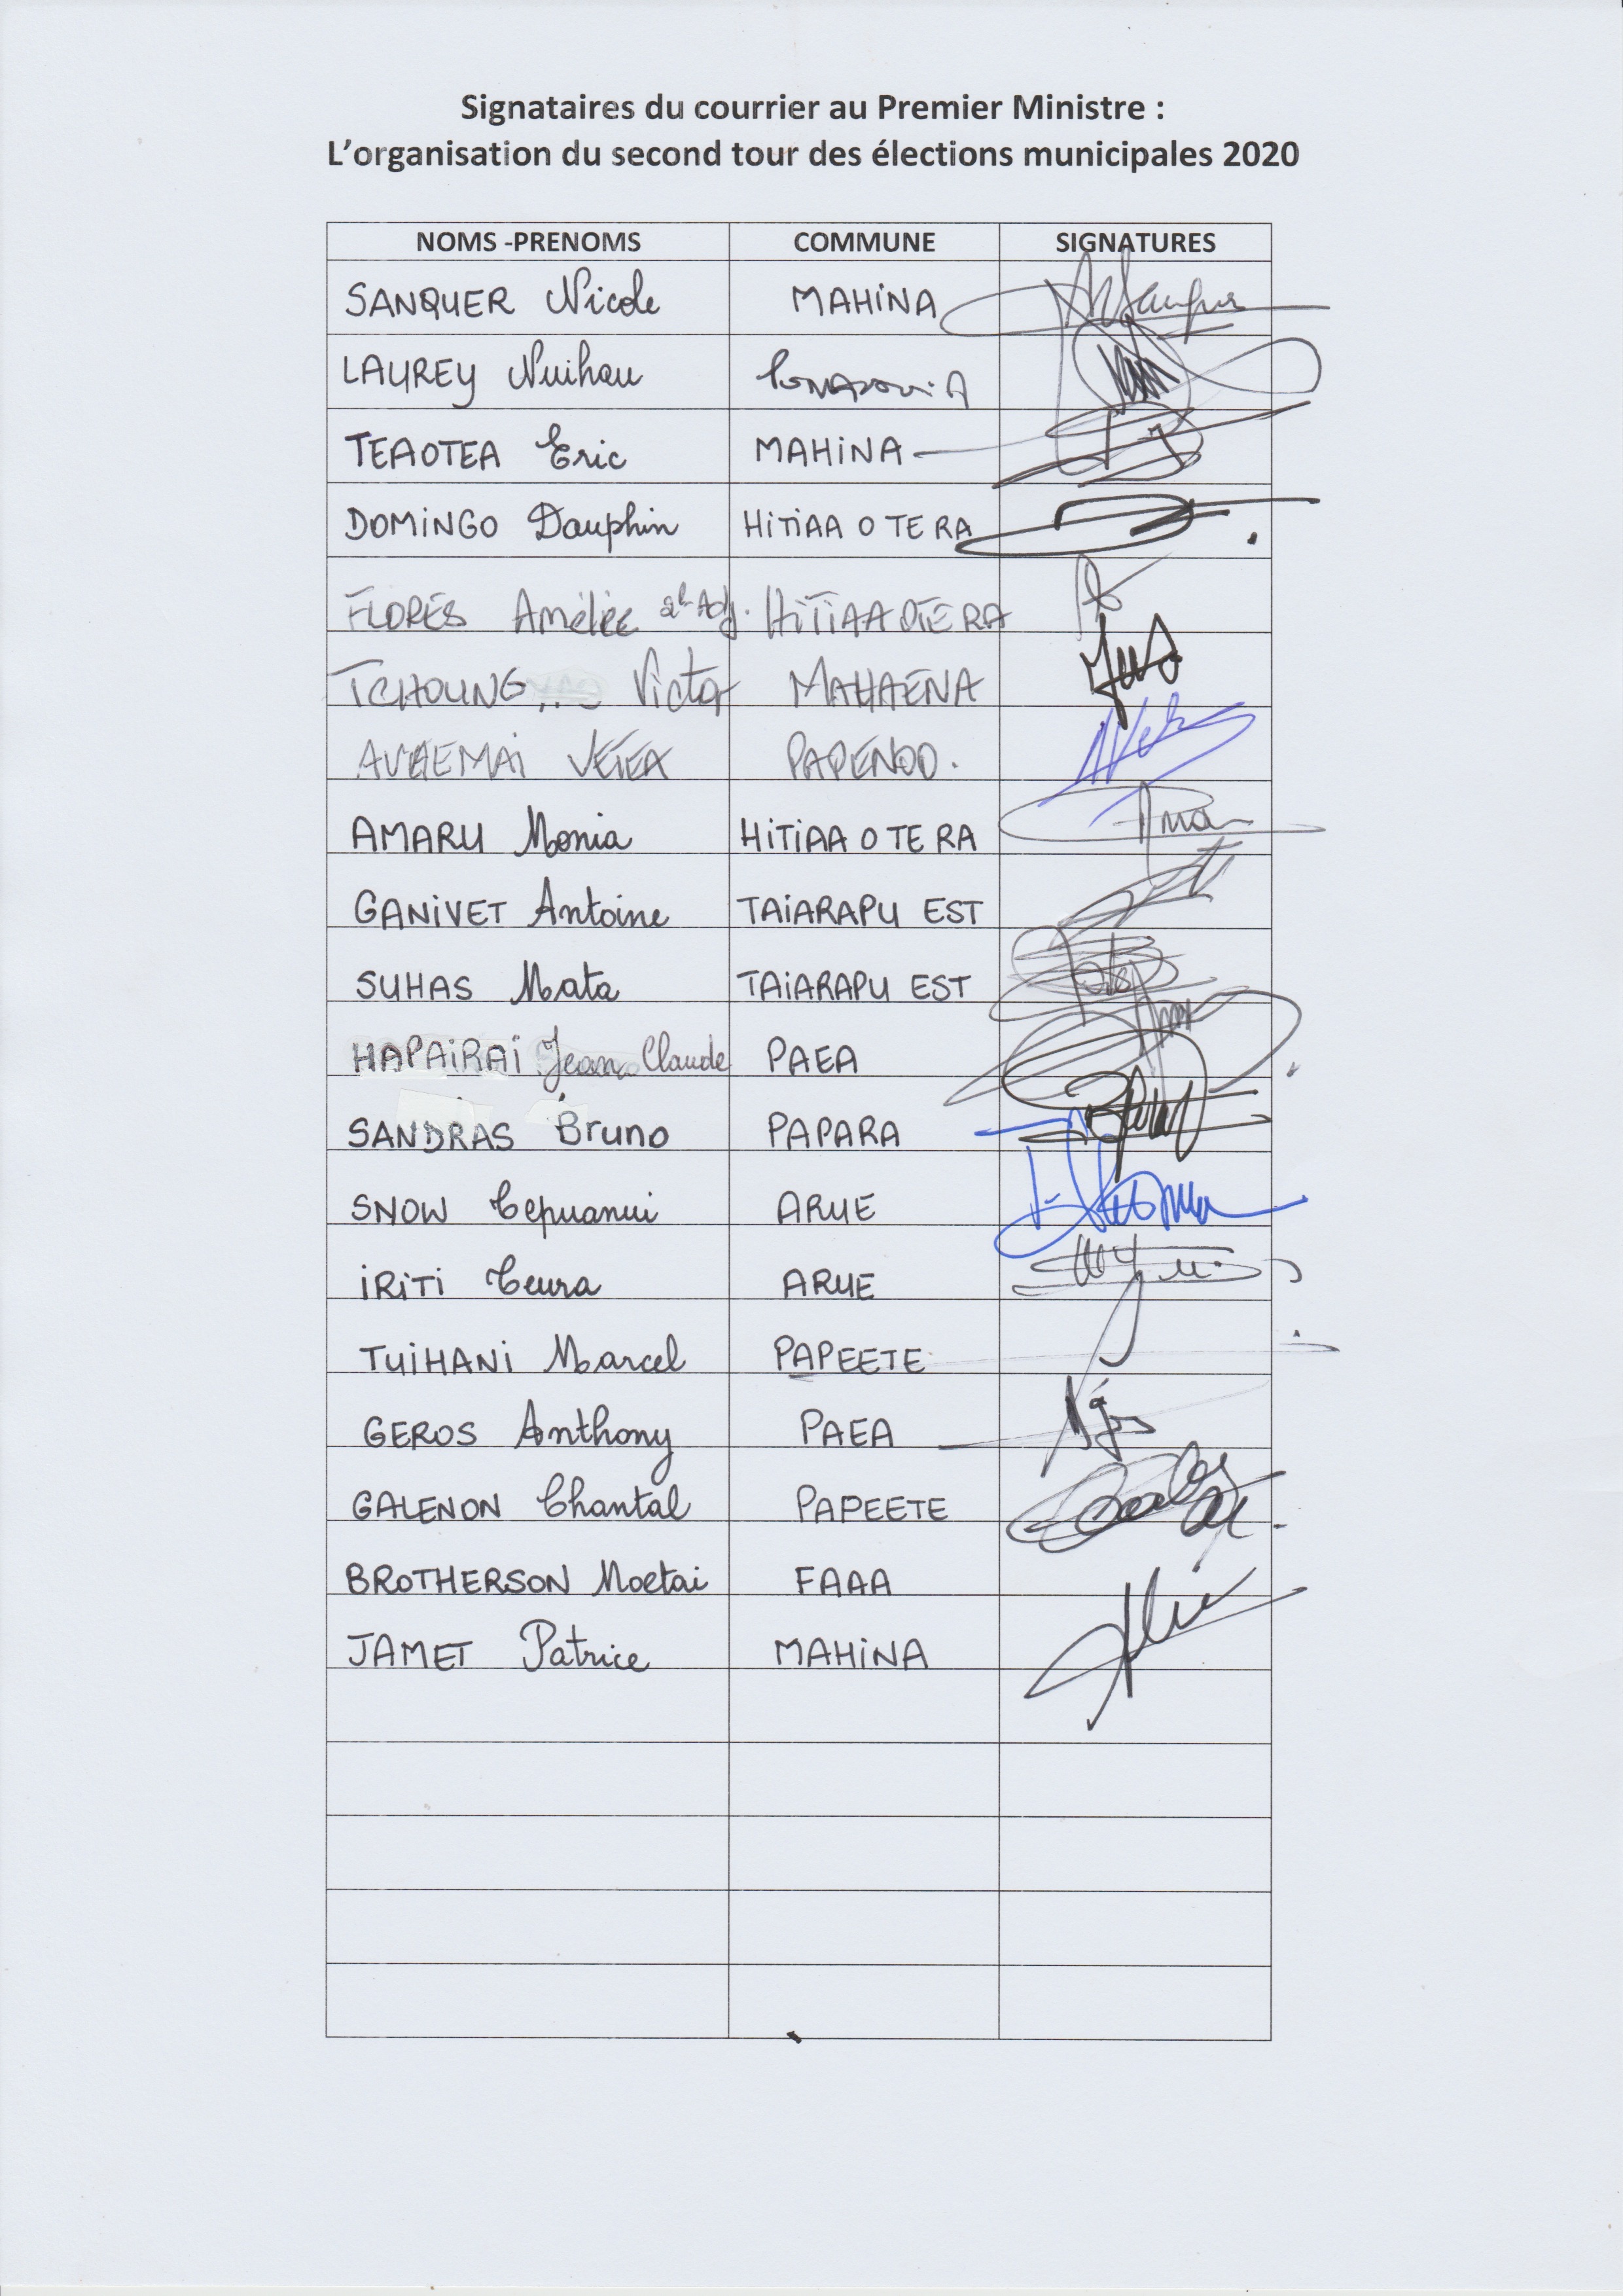 Signataires du courrier au Premier Ministre :
L'organisation du second tour des élections municipales 2020
NOMS -PRENOMS COMMUNE SIGNATURES
SANQUER Nicole MAHINA
LAUREY Nuihau PUNAAUIA
TEAOTEA Eric MAHINA
DOMINGO Dauphin HITIAA O TE RA
FLORES Amélie 2e Adj. HITIAA OTE RA
TCHOUNG Victor MAHAENA
VETEA PAPENOO.
AMARU Monia HITIAA O TE RA
GANIVET Antoine TAIARAPU EST
SUHAS Mata TAIARAPU EST
HAPAIRAI Jean Claude PAEA
SANDRAS Bruno PAPARA
SNOW Tepuanui ARUE
IRITI Teura ARUE
TUIHANI Marcel PAPEETE
GEROS Anthony PAEA
GALENON Chantal PAPEETE
BROTHERSON Moetai FAAA
JAMET Patrice MAHINA